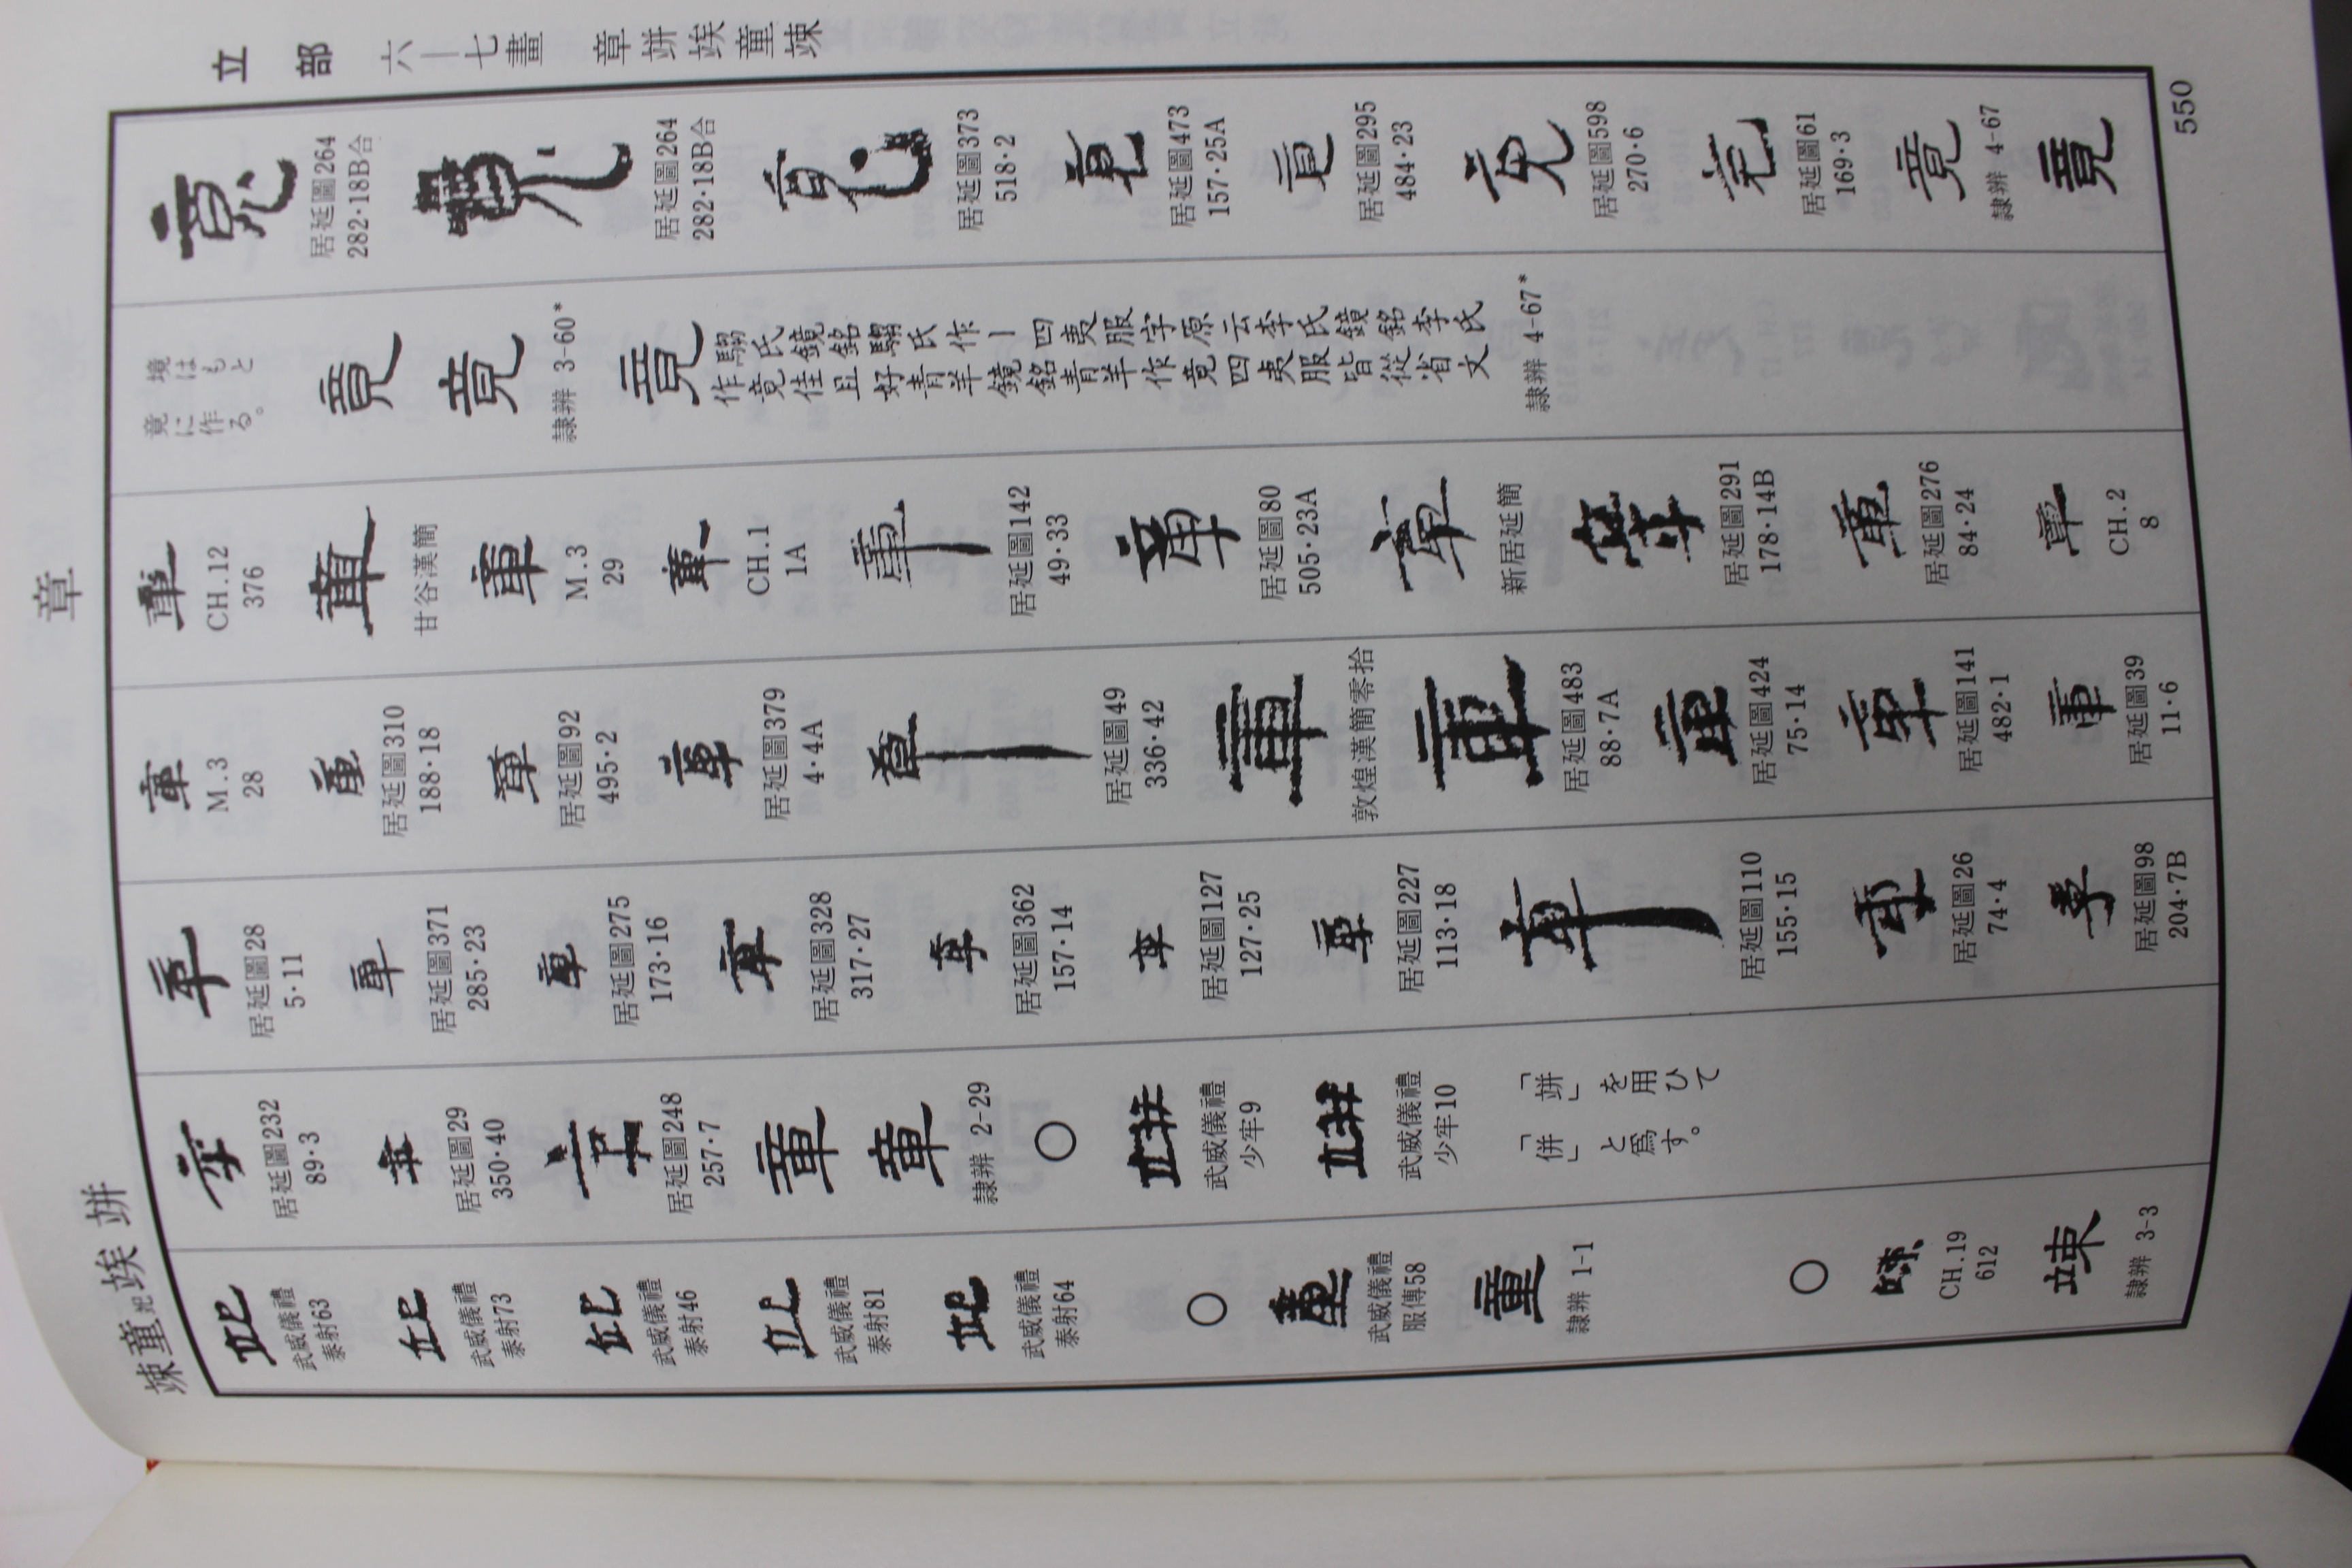 立部 六—七畫 章竮竢童竦
章
竮
竢
童
竦
竟
居延圖264
282·18B合
竟
居延圖264
282·18B合
竟
居延圖373
518·2
竟
居延圖473
157·25A
竟
居延圖295
484·23
竟
居延圖598
270·6
竟
居延圖61
169·3
竟
隸辨 4-67
竟
境はもと
竟に作る。
竟
竟
隸辨 3-60*
竟
騶氏鏡銘騶氏作｜四夷服字原云李氏鏡銘李氏
作竟佳且好青羊鏡銘青羊作竟四夷服皆從省文
隸辨 4-67*
章
CH.12
376
章
甘谷漢簡
章
M.3
29
章
CH.1
1A
章
居延圖142
49·33
章
居延圖80
505·23A
章
新居延簡
章
居延圖291
178·14B
章
居延圖276
84·24
章
CH.2
8
章
M.3
28
章
居延圖310
188·18
章
居延圖92
495·2
章
居延圖379
4·4A
章
居延圖49
336·42
章
敦煌漢簡零拾
章
居延圖483
88·7A
章
居延圖424
75·14
章
居延圖141
482·1
章
居延圖39
11·6
章
居延圖28
5·11
章
居延圖371
285·23
章
居延圖275
173·16
章
居延圖328
317·27
章
居延圖362
157·14
章
居延圖127
127·25
章
居延圖227
113·18
章
居延圖110
155·15
章
居延圖26
74·4
章
居延圖98
204·7B
章
居延圖232
89·3
章
居延圖29
350·40
章
居延圖248
257·7
章
章
隸辨 2-29
○
竮
武威儀禮
少牢9
竮
武威儀禮
少牢10
「竮」を用ひて
「併」と爲す。
武威儀禮
泰射63
武威儀禮
泰射73
武威儀禮
泰射46
武威儀禮
泰射81
武威儀禮
泰射64
○
童
武威儀禮
服傳58
童
隸辨 1-1
○
竦
CH.19
612
竦
隸辨 3-3
550